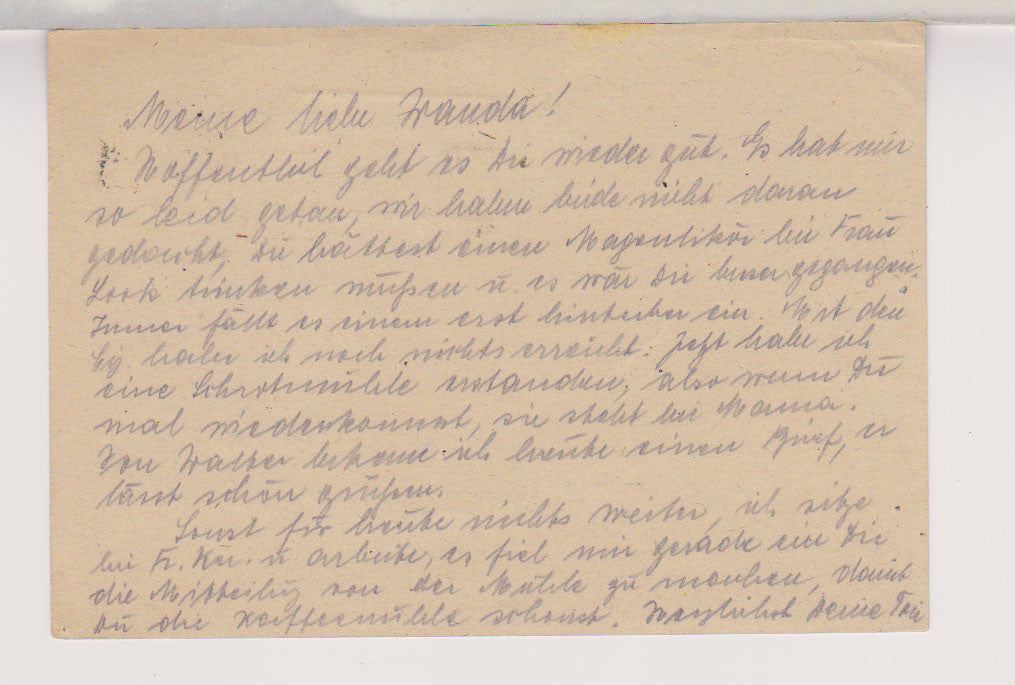 Meine liebe Wanda!
Hoffentlich geht es Dir wieder gut. Es hat mir
so leid getan, wir haben beide nicht daran
gedacht, Du hättest einen Magenlikör bei Frau
trinken müßen u. es wär Dir besser gegangen.
Immer fällt es einem erst hinterher ein. Mit den
habe ich noch nichts erreicht. Jetzt habe ich
eine Schrotmühle erstanden, also wenn Du
mal wiederkommst, sie steht bei Mama.
Von Walter bekam ich heute einen Brief, er
lässt schön grüßen.
Sonst für heute nichts weiter, ich sitze
bei Fr. Kü. u. arbeite, es fiel mir gerade ein Dir
die Mitteilg von der Mühle zu machen, damit
Du die Kaffeemühle schonst. Herzlichst Deine